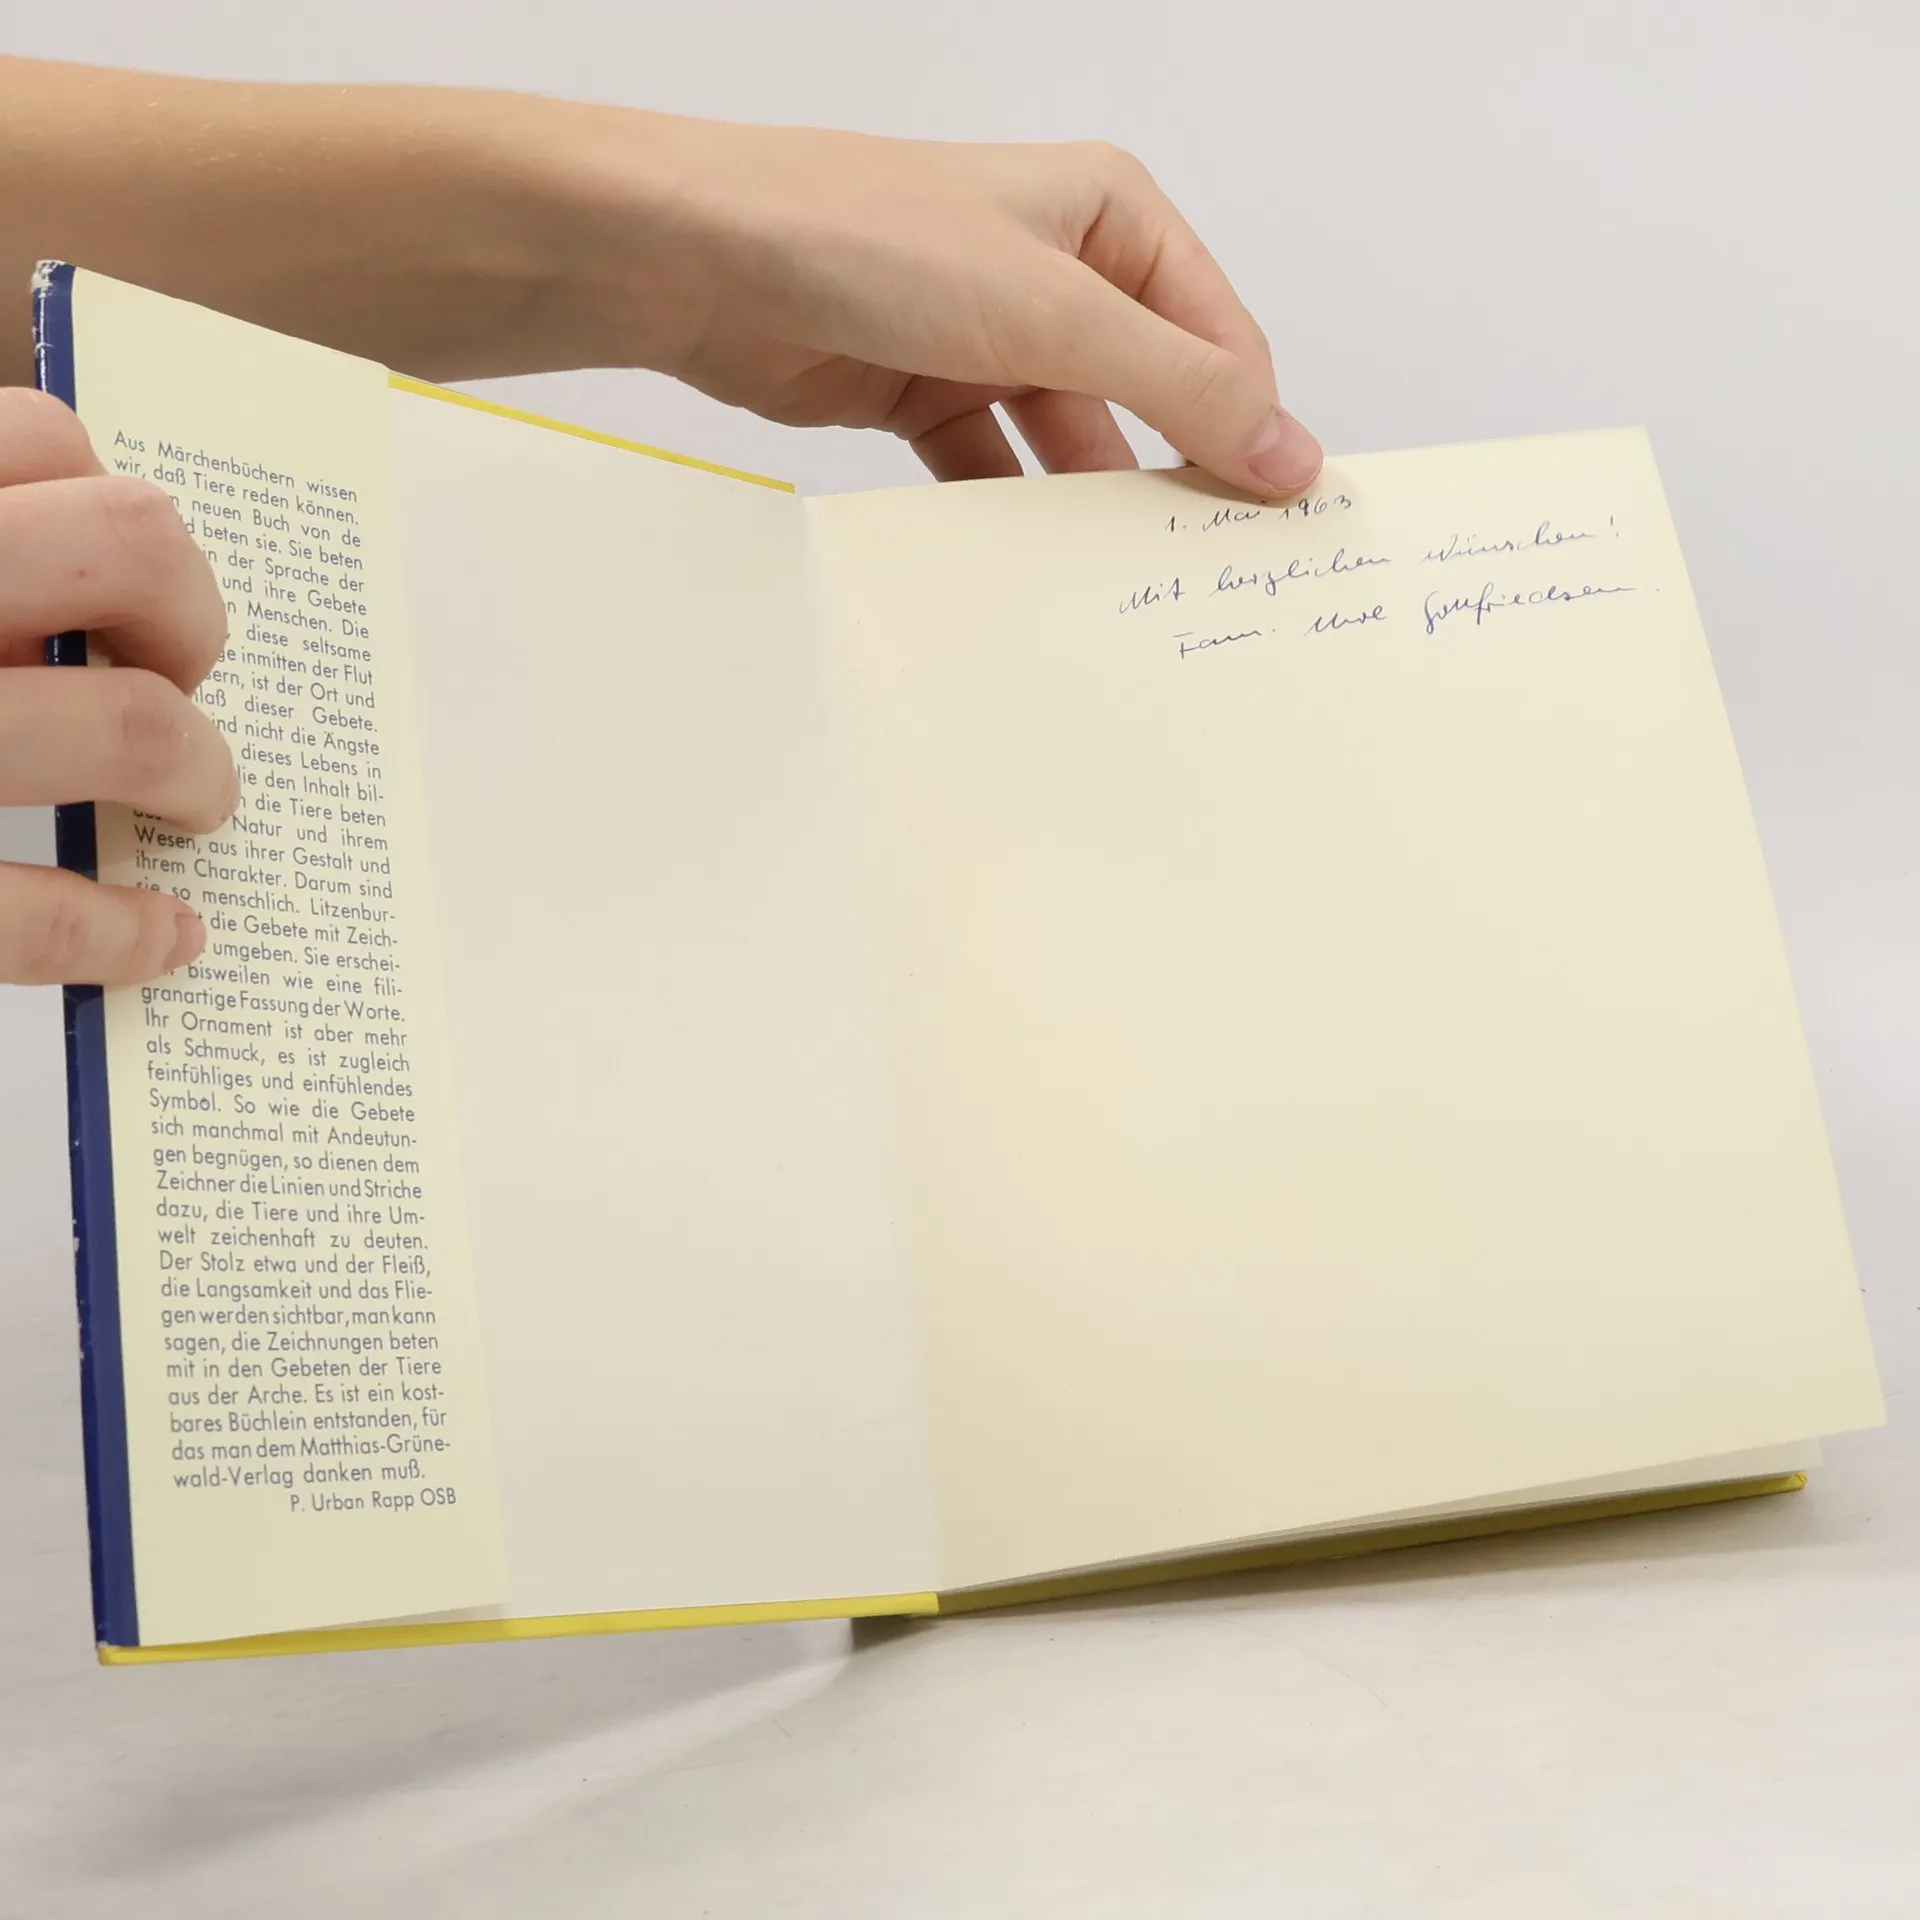 Aus Märchenbüchern wissen
wir, daß Tiere reden können.
neuen Buch von de
beten sie. Sie beten
in der Sprache der
und ihre Gebete
Menschen. Die
diese seltsame
inmitten der Flut
ist der Ort und
dieser Gebete.
nicht die Ängste
dieses Lebens in
den Inhalt bil-
die Tiere beten
Natur und ihrem
Wesen, aus ihrer Gestalt und
ihrem Charakter. Darum sind
sie so menschlich. Litzenbur-
die Gebete mit Zeich-
umgeben. Sie erschei-
bisweilen wie eine fili-
granartige Fassung der Worte.
Ihr Ornament ist aber mehr
als Schmuck, es ist zugleich
feinfühliges und einfühlendes
Symbol. So wie die Gebete
sich manchmal mit Andeutun-
gen begnügen, so dienen dem
Zeichner die Linien und Striche
dazu, die Tiere und ihre Um-
welt zeichenhaft zu deuten.
Der Stolz etwa und der Fleiß,
die Langsamkeit und das Flie-
gen werden sichtbar, man kann
sagen, die Zeichnungen beten
mit in den Gebeten der Tiere
aus der Arche. Es ist ein kost-
bares Büchlein entstanden, für
das man dem Matthias-Grüne-
wald-Verlag danken muß.
P. Urban Rapp OSB
1. Mai 1963
Mit herzlichen Wünschen!
Fam. Gottfriedsen.